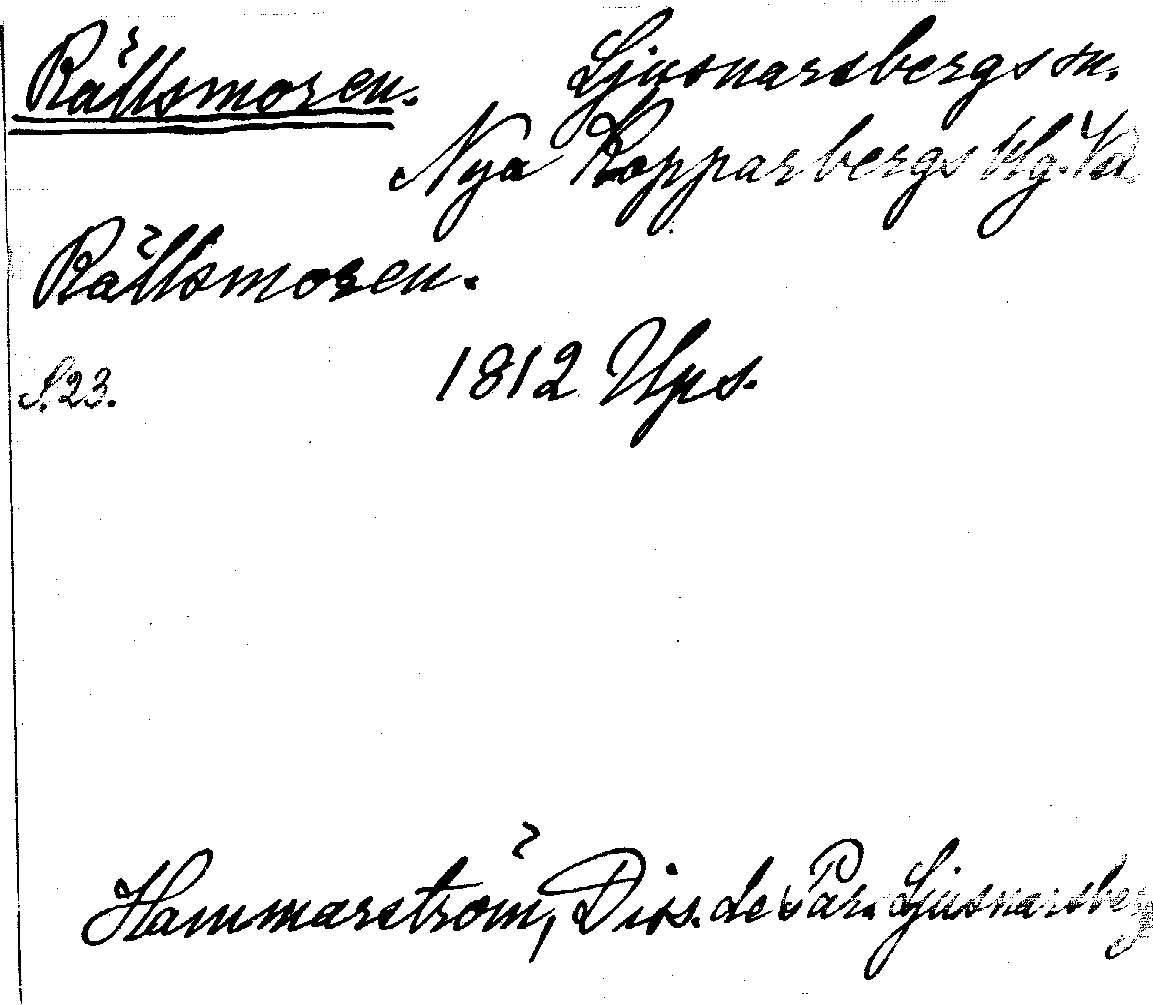 Rällsmoren. Ljusnarsbergs sn.
Nya Kopparbergs blg. Vstl
Rällsmoren.
S. 23. 1812 Ups.
Hammarström, Diss. de Par. Ljusnarsberg